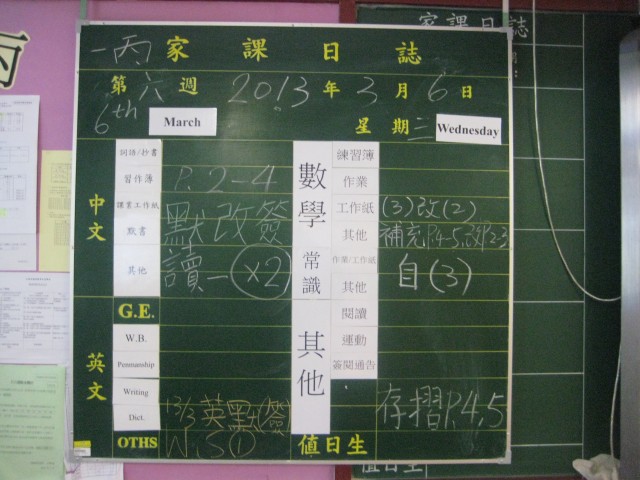 一丙 家課日誌
第六週 2013年3月6日
6th March 星期三 Wednesday
中文
詞語/抄書
習作簿 P. 2-4
課業工作紙 默改簽
默書
其他 讀一(x2)
英文
G.E.
W.B.
Penmanship
Writing
Dict. 13/3 英默(簽)
OTHS W.S①
數學
練習簿
作業
工作紙 (3)改(2)
其他 補充P.4-5,改P.2-3
常識
作業/工作紙 自(3)
其他
其他
閱讀
運動
簽閱通告
存摺P.4,5
值日生
家課日誌
值日生
丙